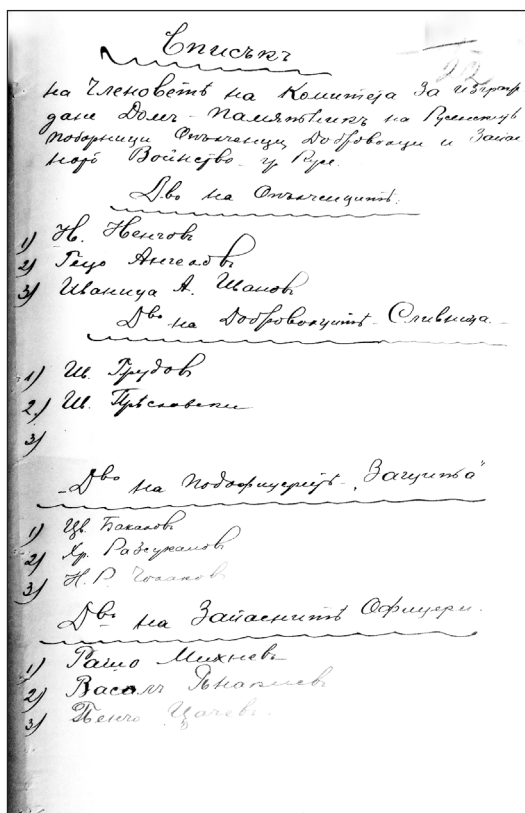 Списъкъ
22
на Членоветѣ на Комитета за изгра
дане Домъ-Паметникъ на Русенскитѣ
Поборници Опълченци Доброволци и Запас
ното Войнство гр. Русе.
Д-во на Опълченцитѣ.
1) Н. Ненчовъ
2) Гецо Ангеловъ
3) Иваница А. Ивановъ
Д-во на Доброволцитѣ - Сливница
1) Ив. Трудовъ
2) Ив. Прѣславски
3)
Д-во на подофицеритѣ - „Защита"
1) Цв. Бакаловъ
2) Хр. Разсукановъ
3) Н. Р. Чолаков
Д-во на Запаснитѣ Офицери.
1) Рашо Михневъ
2) Василъ
3) Пенчо Цачевъ.